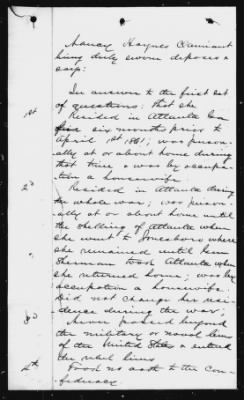 Nancy Haynes Claimant
being duly sworn deposes &
says:
In answer to the first set
of questions: that she
1st Resided in Atlanta Ga
six months prior to
April 1st 1861; was person-
ally at or about home during
that time & was by occupa-
tion a housewife
2d Resided in Atlanta during
the whole war; was person-
ally at or about home until
the shelling of Atlanta when
she went to Jonesboro where
she remained until Gen
Sherman took Atlanta when
she returned home; was by
occupation a housewife.
Did not change her resi-
dence during the war;
3d Never passed beyond
the military or naval lines
of the United States & entered
the rebel lines
4th Took no oath to the Con-
federacy